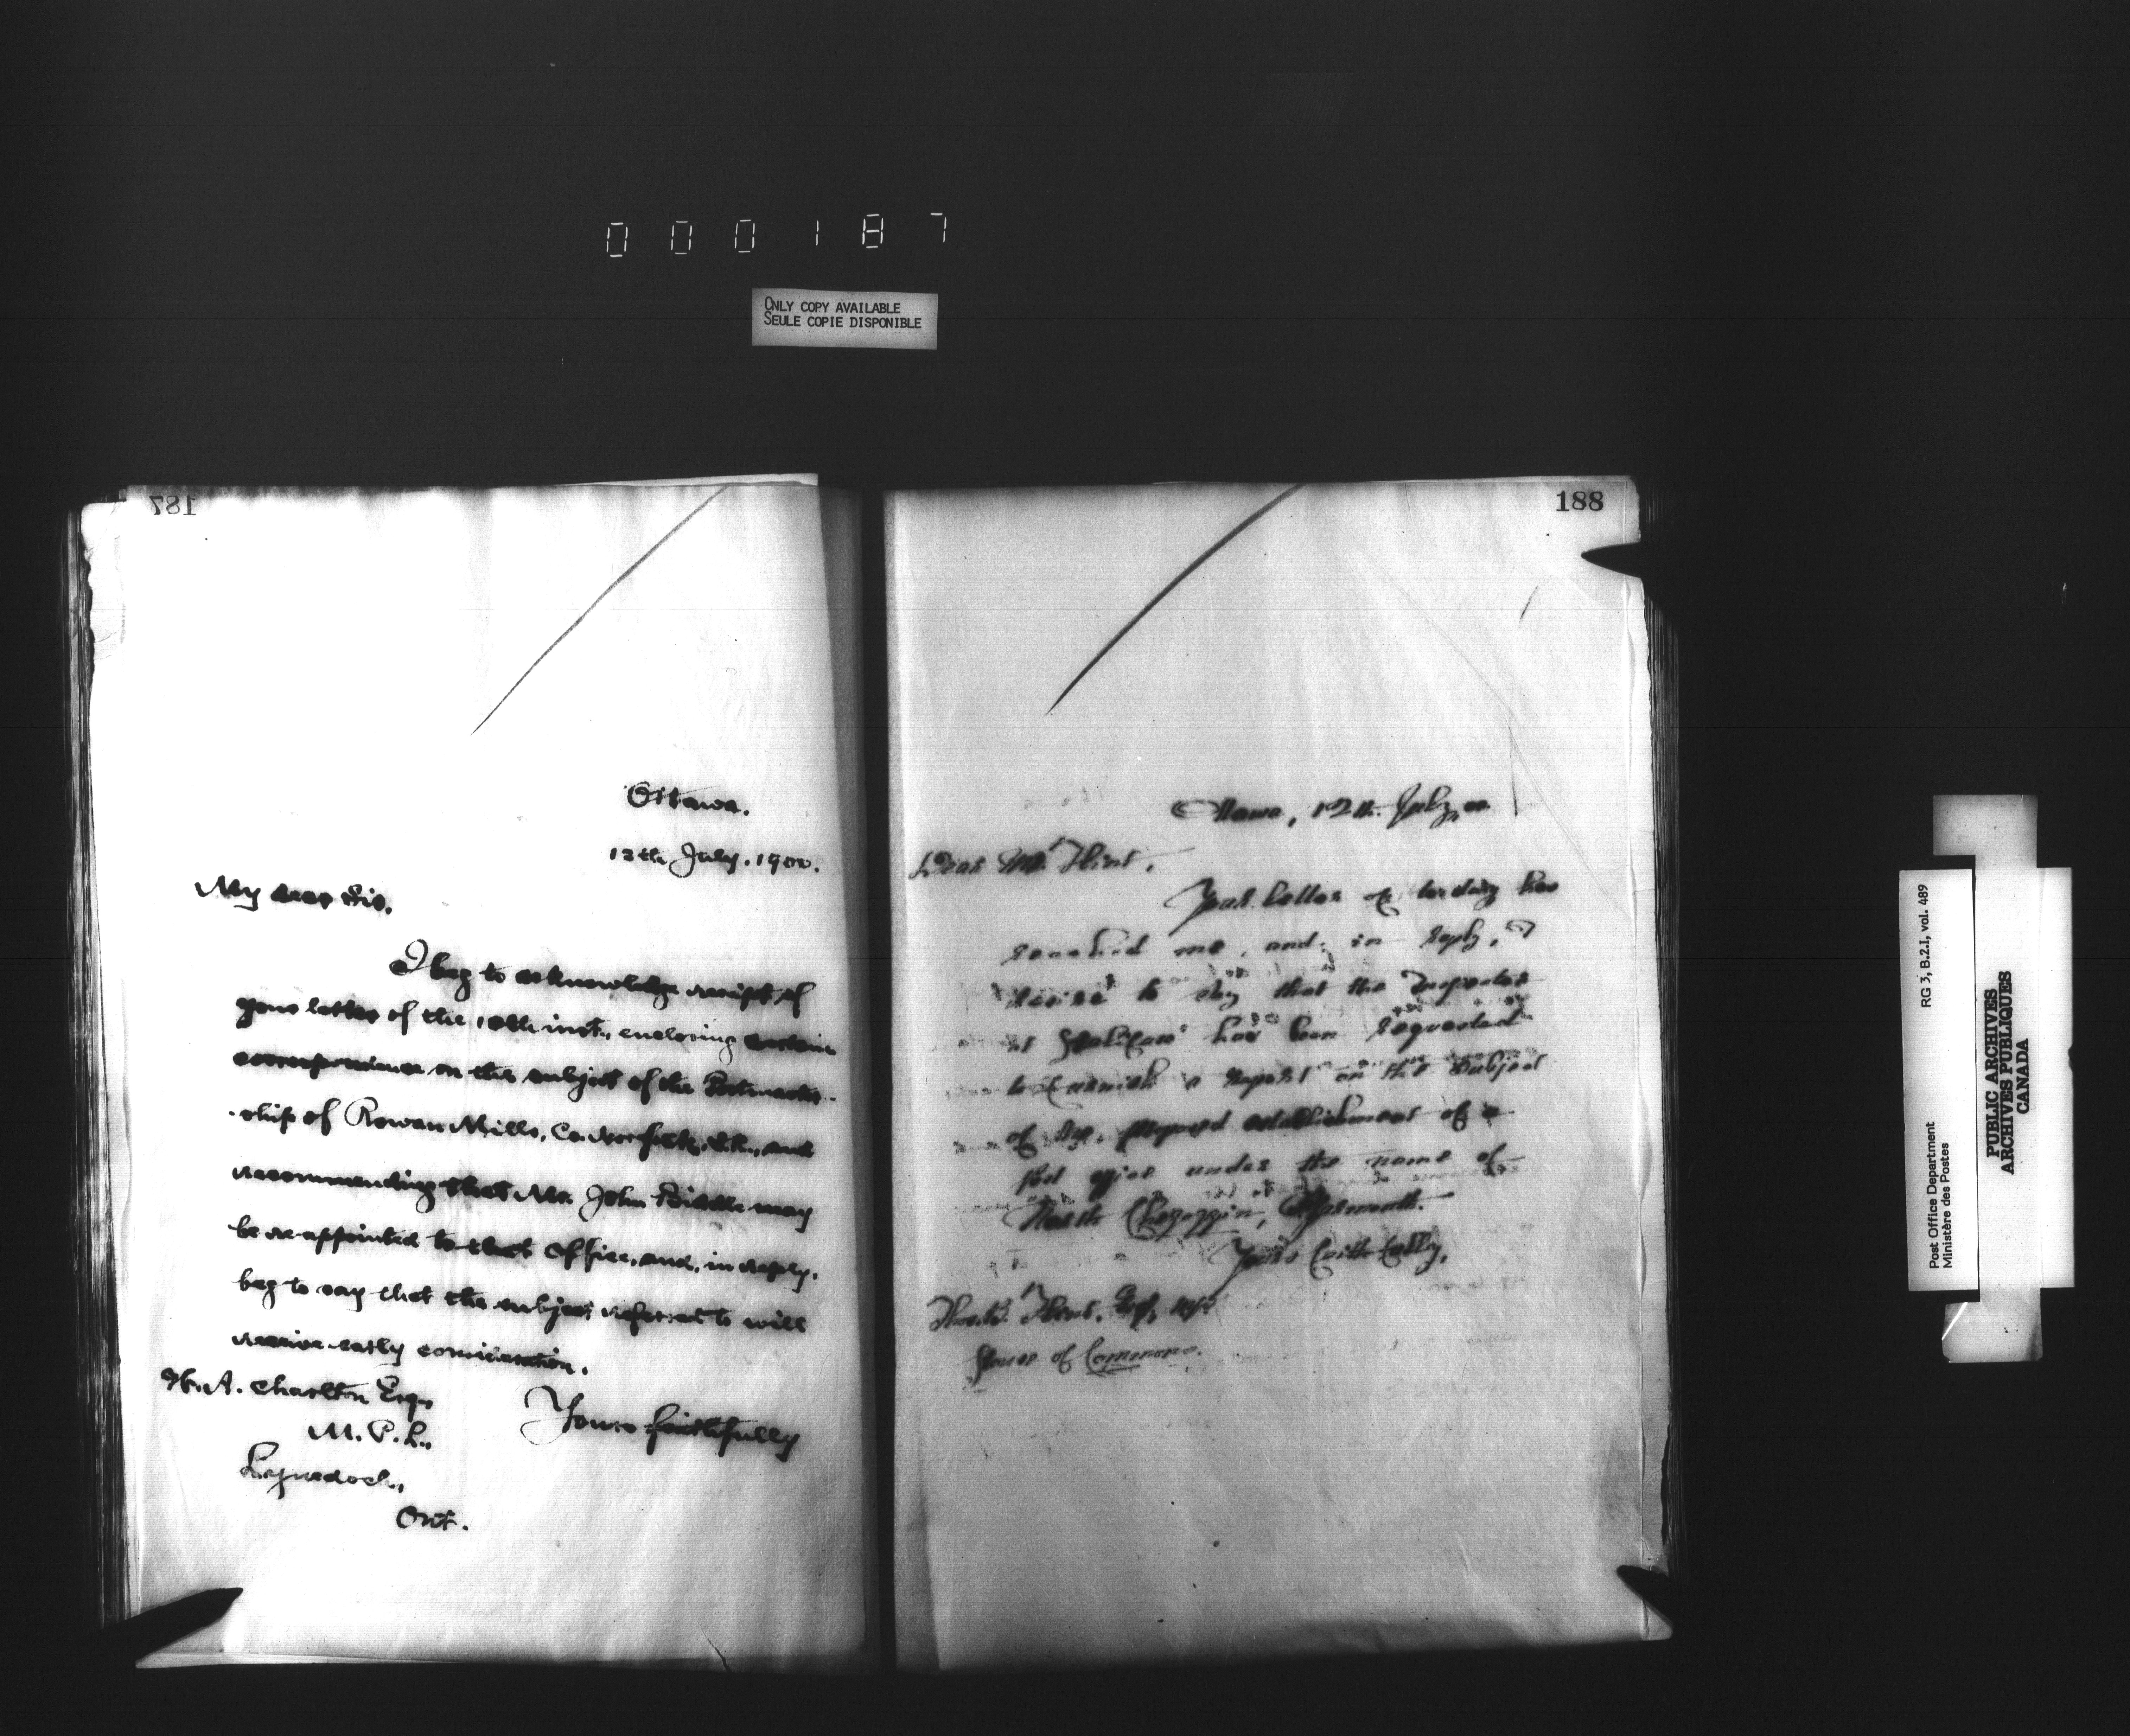 000187
ONLY COPY AVAILABLE
SEULE COPIE DISPONIBLE
187
Ottawa.
12th July. 1900.
My dear Sir,
I beg to acknowledge receipt of
your letter of the 10th inst., enclosing certain
correspondence on the subject of the Postmaster-
-ship of Rowan Mills, Co. Norfolk, S.R., and
recommending that Mr. John Biddle may
be re-appointed to that Office, and, in reply,
beg to say that the subject referred to will
receive early consideration.
Yours faithfully
W. A. Charlton Esq.,
M. P. P.,
Lynedoch,
Ont.
188
Ottawa, 12th July, 00
Dear Mr. Flint,
Your letter of to-day has
reached me, and, in reply, I
desire to say that the Inspector
at Halifax has been requested
to furnish a report on the subject
of the proposed establishment of a
post office under the name of
North Chegoggin, Yarmouth.
Yours faithfully,
Thos. B. Flint, Esq., M.P.
House of Commons.
Post Office Department
Ministère des Postes
RG 3, B.2.I, vol. 489
PUBLIC ARCHIVES
ARCHIVES PUBLIQUES
CANADA